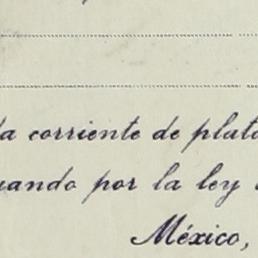 da corriente de plata
uando por la ley
México,